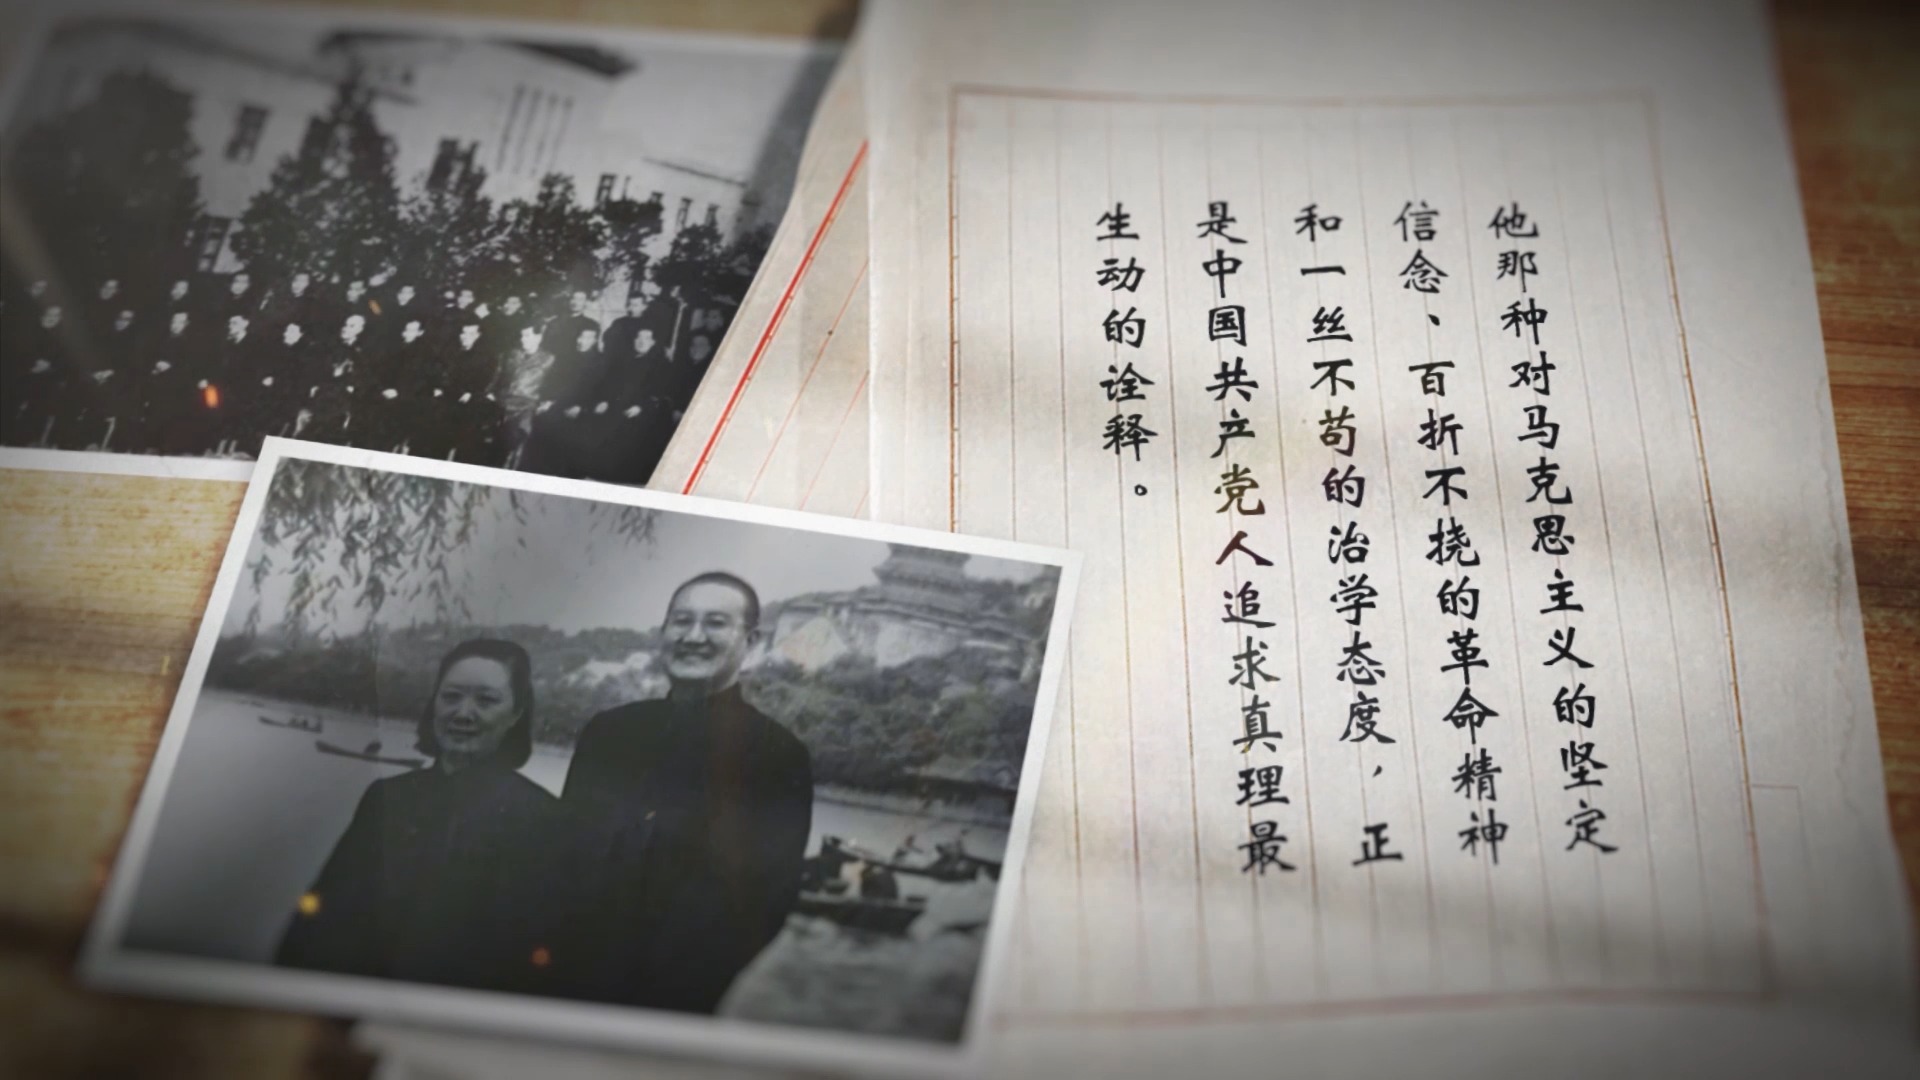 他那种对马克思主义的坚定
信念、百折不挠的革命精神
和一丝不苟的治学态度，正
是中国共产党人追求真理最
生动的诠释。